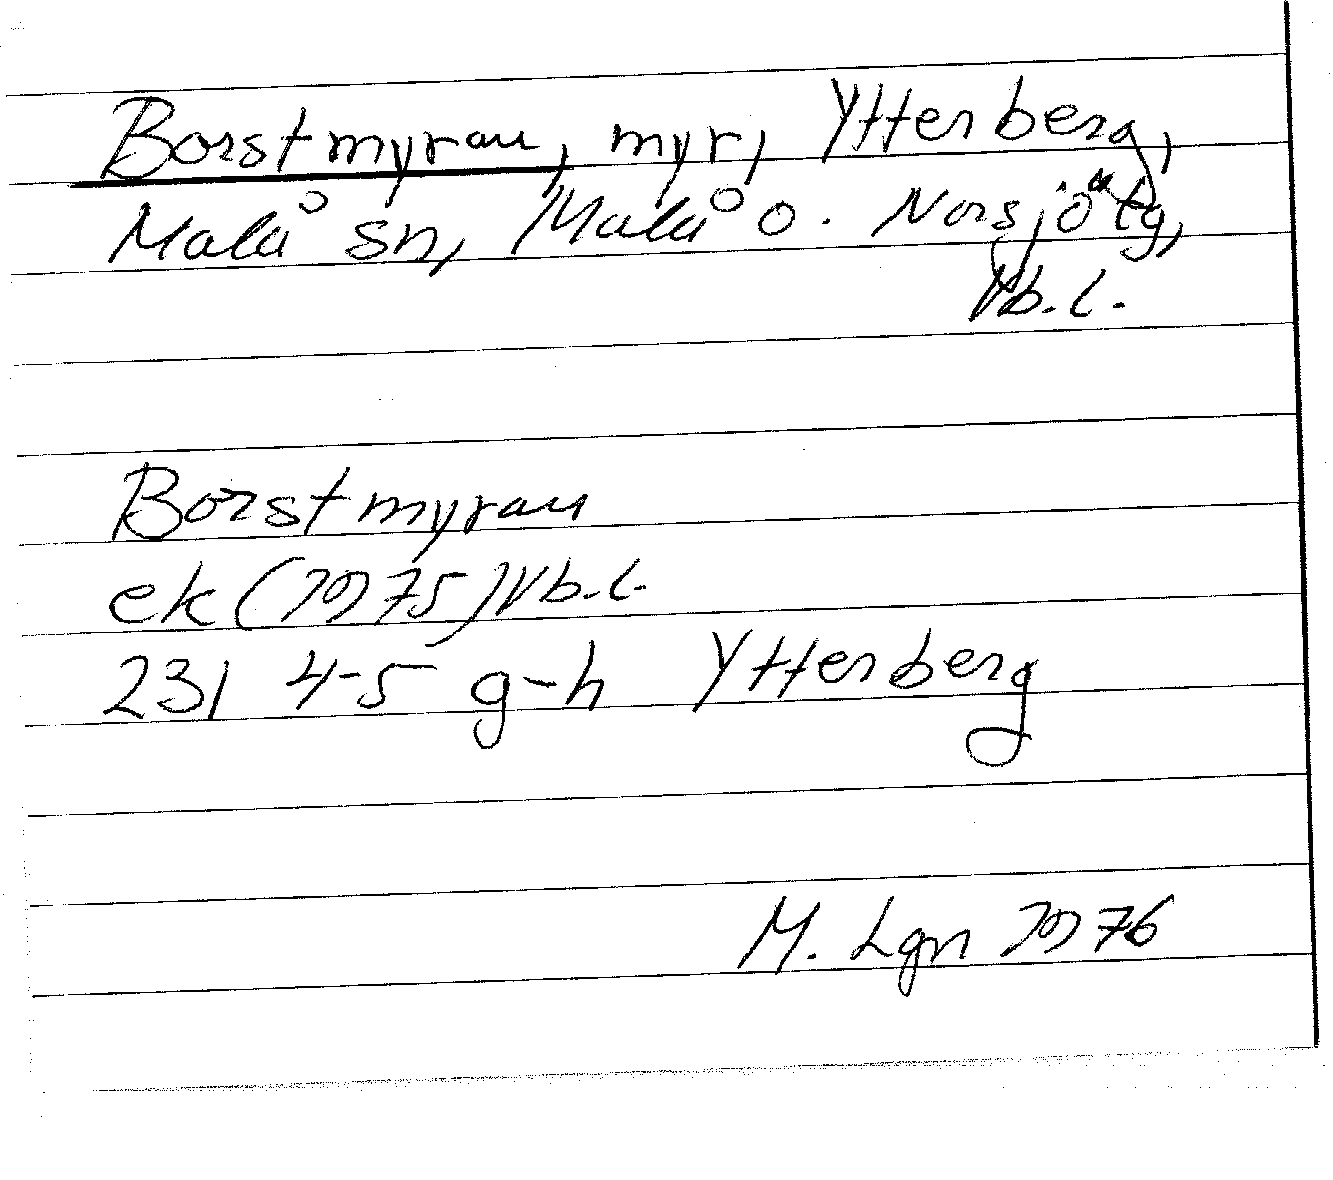 Borstmyran, myr, Ytterberg,
Malå sn, Malå o. Norsjö tg,
Vb.l.
Borstmyran
ek (1975) Vb.l.
231 4-5 g-h Ytterberg
M. Lgn 1976